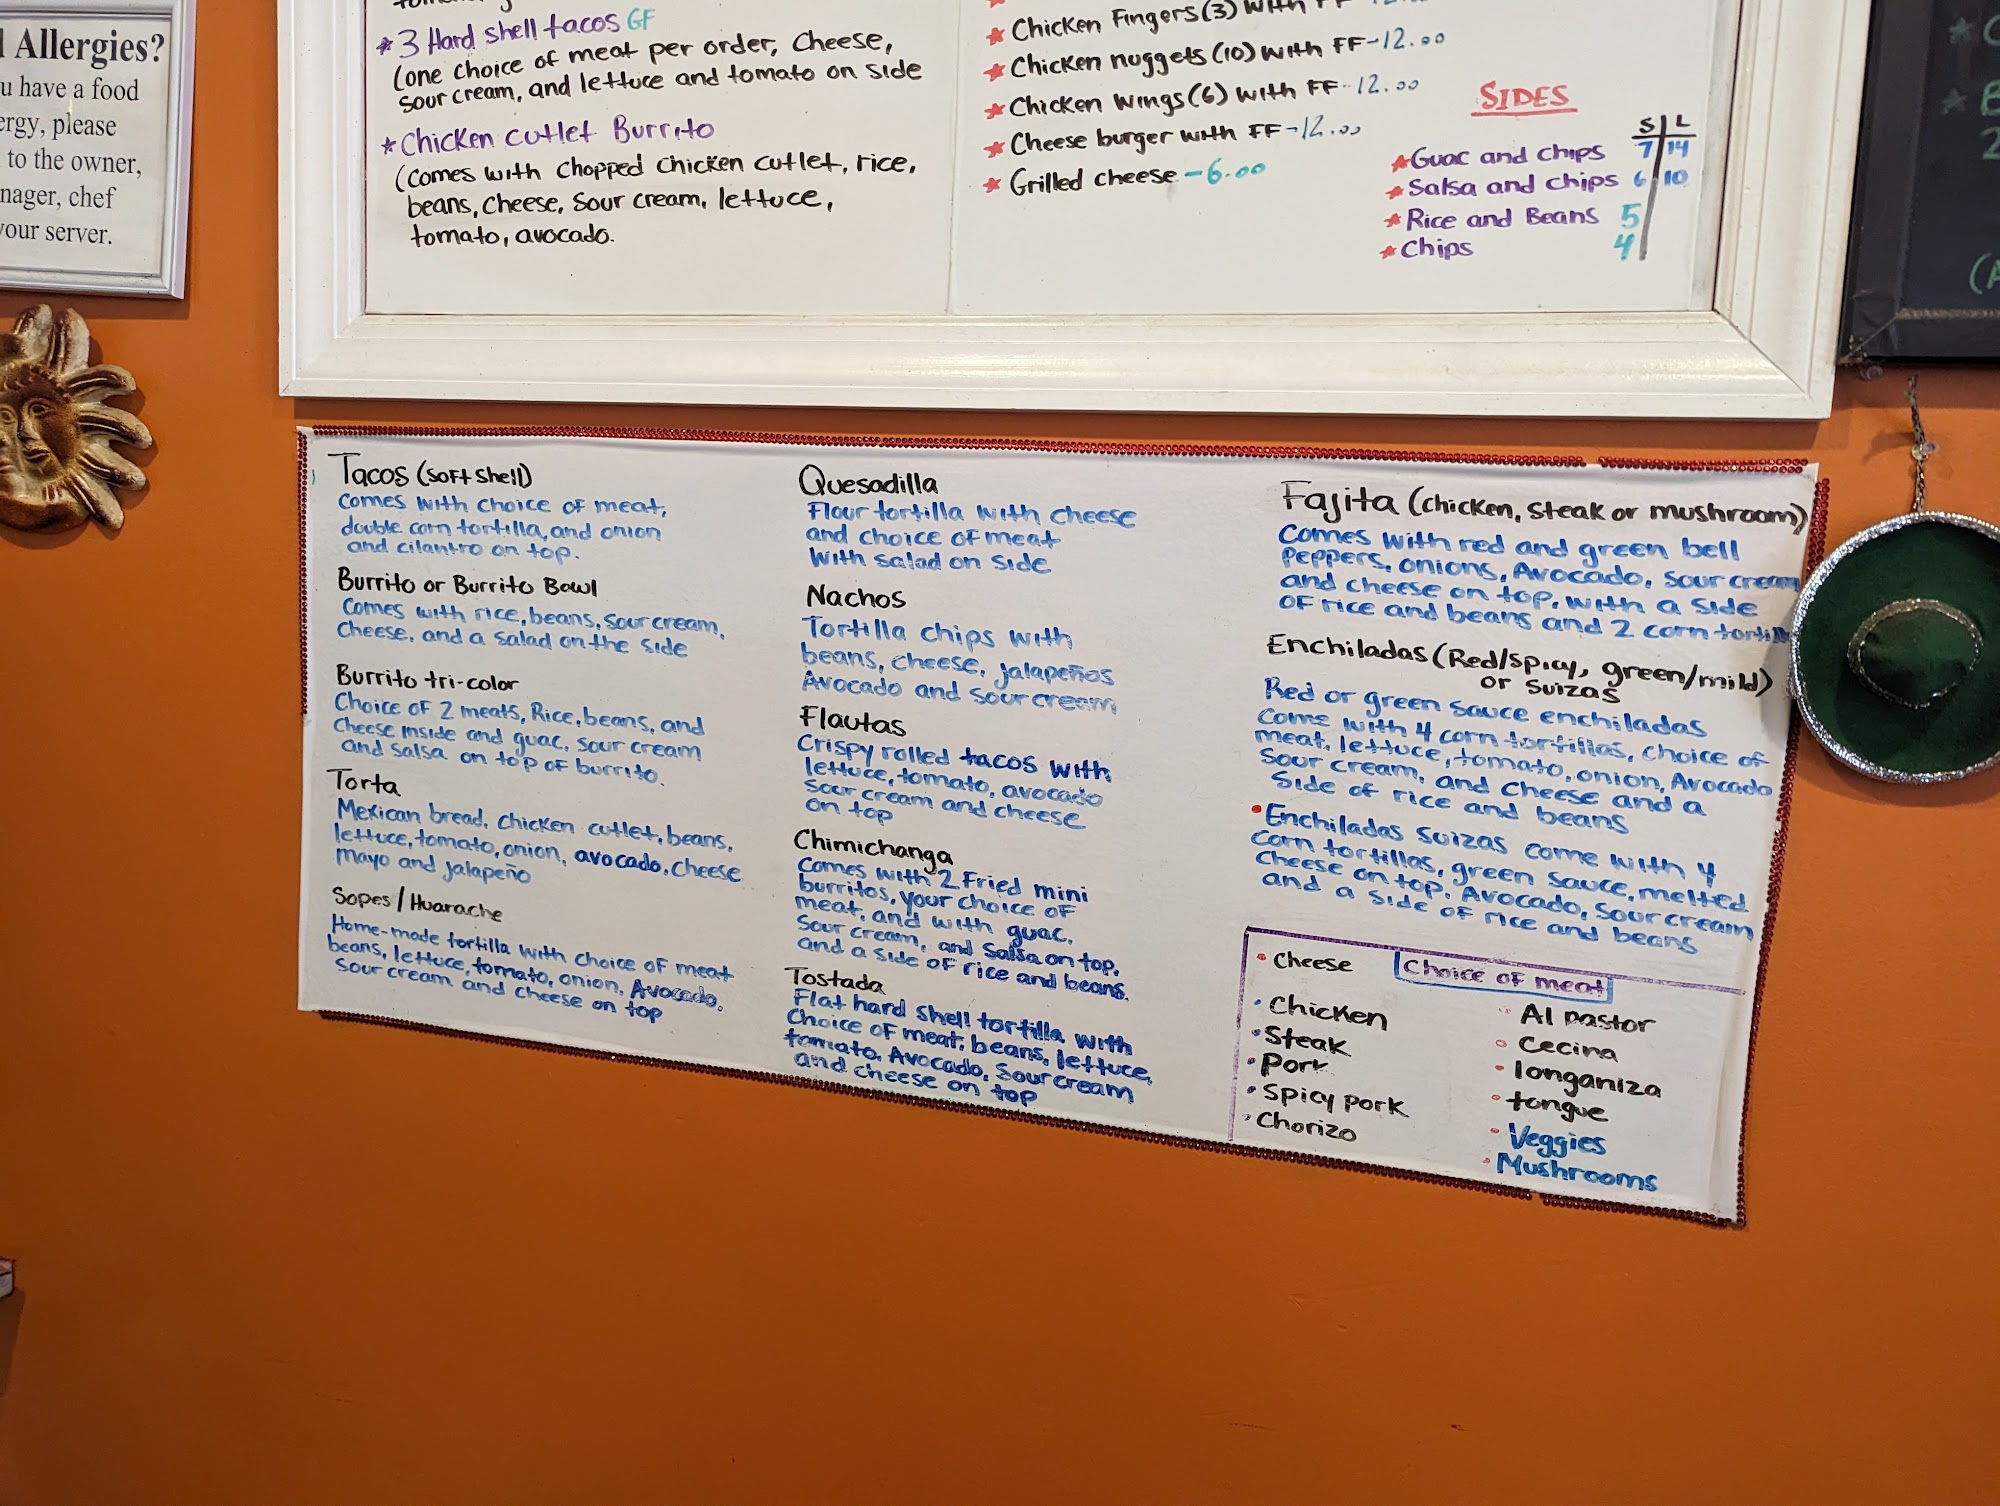 Allergies?
u have a food
ergy, please
to the owner,
nager, chef
your server.
* 3 Hard shell tacos GF
(one choice of meat per order, Cheese,
sour cream, and lettuce and tomato on side
* Chicken cutlet Burrito
(comes with chopped chicken cutlet, rice,
beans, cheese, sour cream, lettuce,
tomato, avocado.
* Chicken Fingers (3) with FF
* Chicken nuggets (10) with FF - 12.00
* Chicken wings (6) with FF - 12.00
* Cheese burger with FF - 12.00
* Grilled cheese - 6.00
SIDES
S L
* Guac and chips 7 14
* Salsa and chips 6 10
* Rice and Beans 5
* Chips 4
Tacos (soft shell)
Comes with choice of meat,
double corn tortilla, and onion
and cilantro on top.
Burrito or Burrito Bowl
Comes with rice, beans, sour cream,
Cheese, and a salad on the side
Burrito tri-color
Choice of 2 meats, Rice, beans, and
Cheese inside and guac, sour cream
and salsa on top of burrito.
Torta
Mexican bread, chicken cutlet, beans,
lettuce, tomato, onion, avocado, cheese
mayo and jalapeño
Sopes / Huarache
Home-made tortilla with choice of meat
beans, lettuce, tomato, onion, Avocado,
sour cream and cheese on top
Quesadilla
Flour tortilla with cheese
and choice of meat
with salad on side
Nachos
Tortilla chips with
beans, cheese, jalapeños
Avocado and sour cream
Flautas
Crispy rolled tacos with
lettuce, tomato, avocado
sour cream and cheese
on top
Chimichanga
Comes with 2 Fried mini
burritos, your choice of
meat, and with guac,
sour cream, and salsa on top,
and a side of rice and beans.
Tostada
Flat hard shell tortilla with
Choice of meat, beans, lettuce,
tomato, Avocado, Sour cream
and cheese on top
Fajita (chicken, steak or mushroom)
Comes with red and green bell
Peppers, onions, Avocado, sour cream
and cheese on top, with a side
of rice and beans and 2 corn
Enchiladas (Red/spicy, green/mild)
or suizas
Red or green sauce enchiladas
come with 4 corn tortillas, choice of
meat, lettuce, tomato, onion, Avocado
Sour cream, and cheese and a
Side of rice and beans
• Enchiladas suizas come with 4
corn tortillas, green sauce, melted
cheese on top, Avocado, sour cream
and a side of rice and beans
Choice of meat
• Cheese
• Chicken
• Steak
• Pork
• Spicy pork
• Chorizo
• Al pastor
• Cecina
• longaniza
• tongue
• Veggies
• Mushrooms